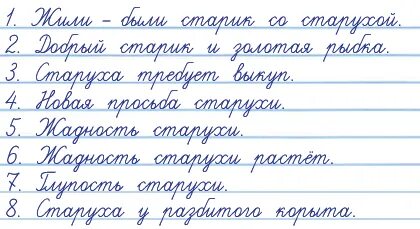 1. Жили - были старик со старухой.
2. Добрый старик и золотая рыбка.
3. Старуха требует выкуп.
4. Новая просьба старухи.
5. Жадность старухи.
6. Жадность старухи растёт.
7. Глупость старухи.
8. Старуха у разбитого корыта.